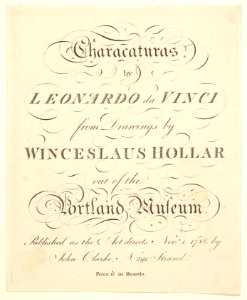 Characaturas
by
LEONARDO da VINCI
from Drawings by
WINCESLAUS HOLLAR
out of the
Portland Museum
Published as the Act directs Novr. 1. 1786. by
John Clarke, Strand.
Price in Boards.